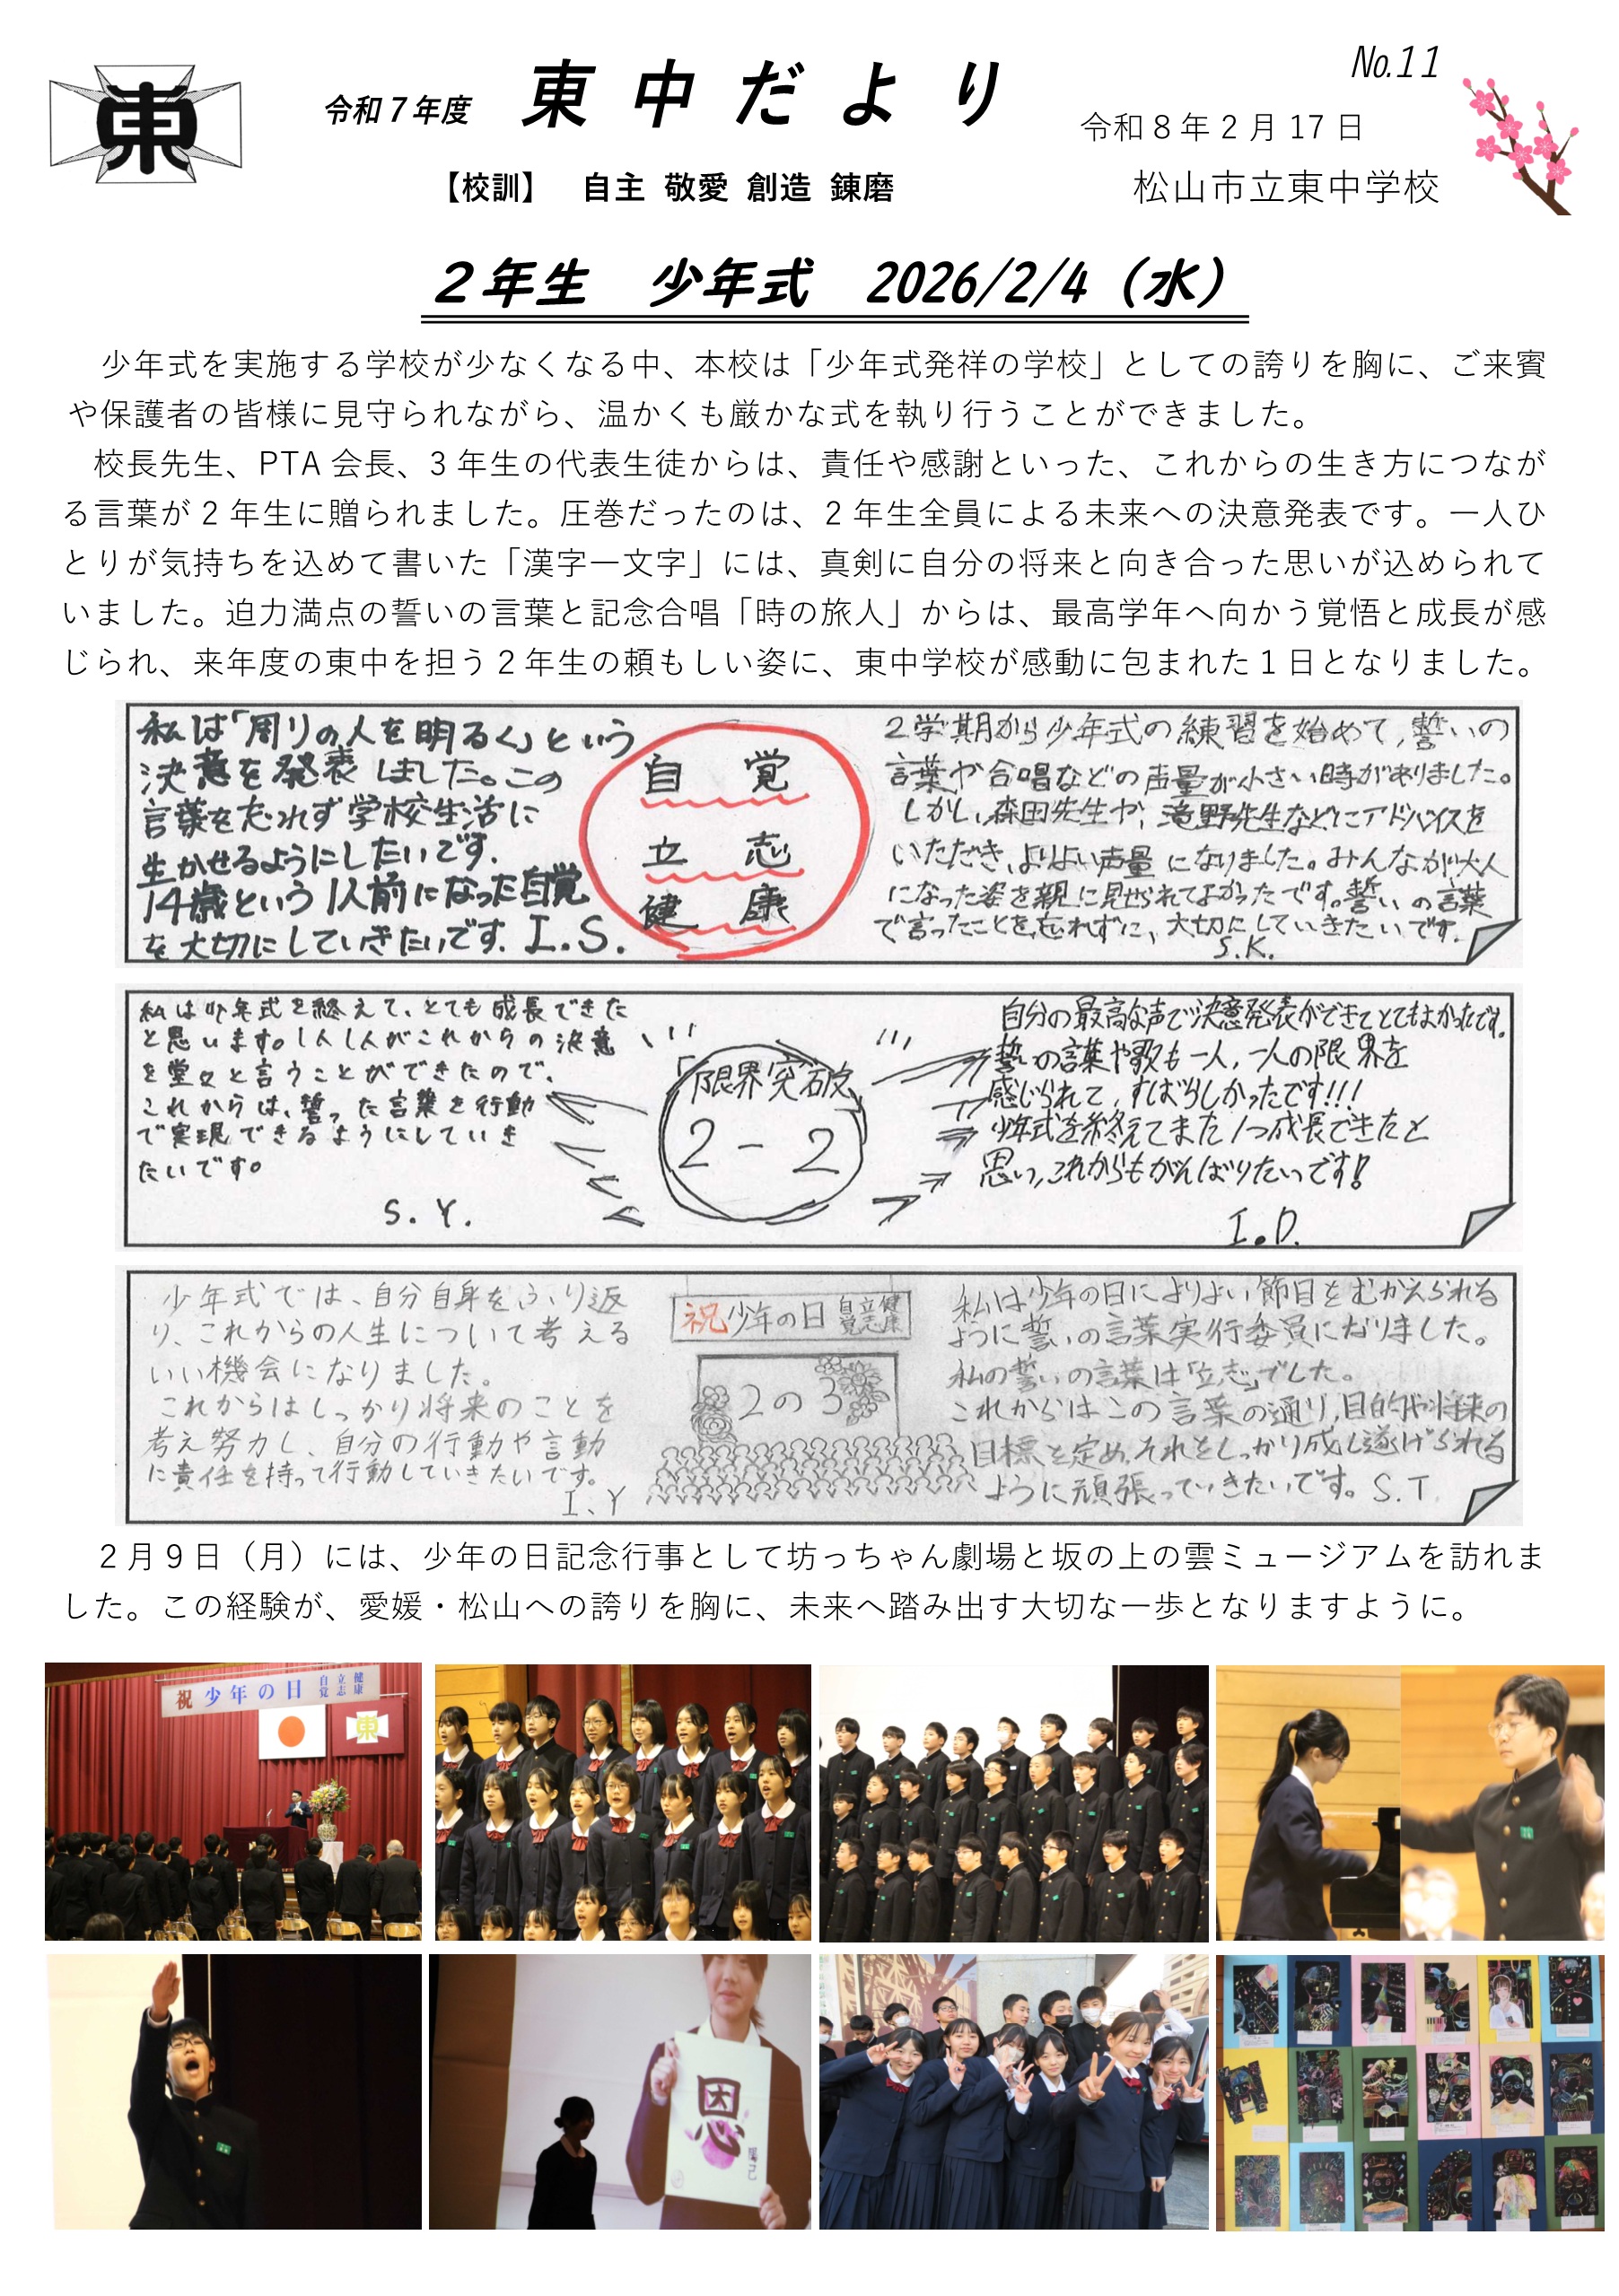 東
令和７年度
東中だより
No.11
令和８年２月17日
【校訓】 自主 敬愛 創造 錬磨
松山市立東中学校
２年生 少年式 2026/2/4（水）
少年式を実施する学校が少なくなる中、本校は「少年式発祥の学校」としての誇りを胸に、ご来賓
や保護者の皆様に見守られながら、温かくも厳かな式を執り行うことができました。
校長先生、PTA会長、3年生の代表生徒からは、責任や感謝といった、これからの生き方につなが
る言葉が２年生に贈られました。圧巻だったのは、2年生全員による未来への決意発表です。一人ひ
とりが気持ちを込めて書いた「漢字一文字」には、真剣に自分の将来と向き合った思いが込められて
いました。迫力満点の誓いの言葉と記念合唱「時の旅人」からは、最高学年へ向かう覚悟と成長が感
じられ、来年度の東中を担う２年生の頼もしい姿に、東中学校が感動に包まれた１日となりました。
私は「周りの人を明るく」という
決意を発表しました。この
言葉を忘れず学校生活に
生かせるようにしたいです。
14歳という1人前になった自覚
を大切にしていきたいです。I.S.
自覚
立志
健康
2学期から少年式の練習を始めて、誓いの
言葉や合唱などの声量が小さい時がありました。
しかし、森田先生や、滝野先生などにアドバイスを
いただき、よりよい声量になりました。みんなが大人
になった姿を親に見せられてよかったです。誓いの言葉
で言ったことを忘れずに、大切にしていきたいです。
S.K.
私は少年式を終えて、とても成長できた
と思います。1人1人がこれからの決意
を堂々と言うことができたので、
これからは、誓った言葉を行動
で実現できるようにしていき
たいです。
S.Y.
「限界突破」
2-2
自分の最高な声で決意発表ができてとてもよかったです。
誓いの言葉や歌も一人、一人の限界を
感じられて、すばらしかったです!!!
少年式を終えてまた1つ成長できたと
思い、これからもがんばりたいです!
I.D.
少年式では、自分自身をふり返
り、これからの人生について考える
いい機会になりました。
これからはしっかり将来のことを
考え努力し、自分の行動や言動
に責任を持って行動していきたいです。
I.Y
祝少年の日 自覚 立志 健康
2の3
私は少年の日によりよい節目をむかえられる
ように誓いの言葉実行委員になりました。
私の誓いの言葉は「立志」でした。
これからはこの言葉の通り、目的や将来の
目標を定め、それをしっかり成し遂げられる
ように頑張っていきたいです。S.T.
２月９日（月）には、少年の日記念行事として坊っちゃん劇場と坂の上の雲ミュージアムを訪れま
した。この経験が、愛媛・松山への誇りを胸に、未来へ踏み出す大切な一歩となりますように。
祝 少年の日 自覚 立志 健康
東
恩